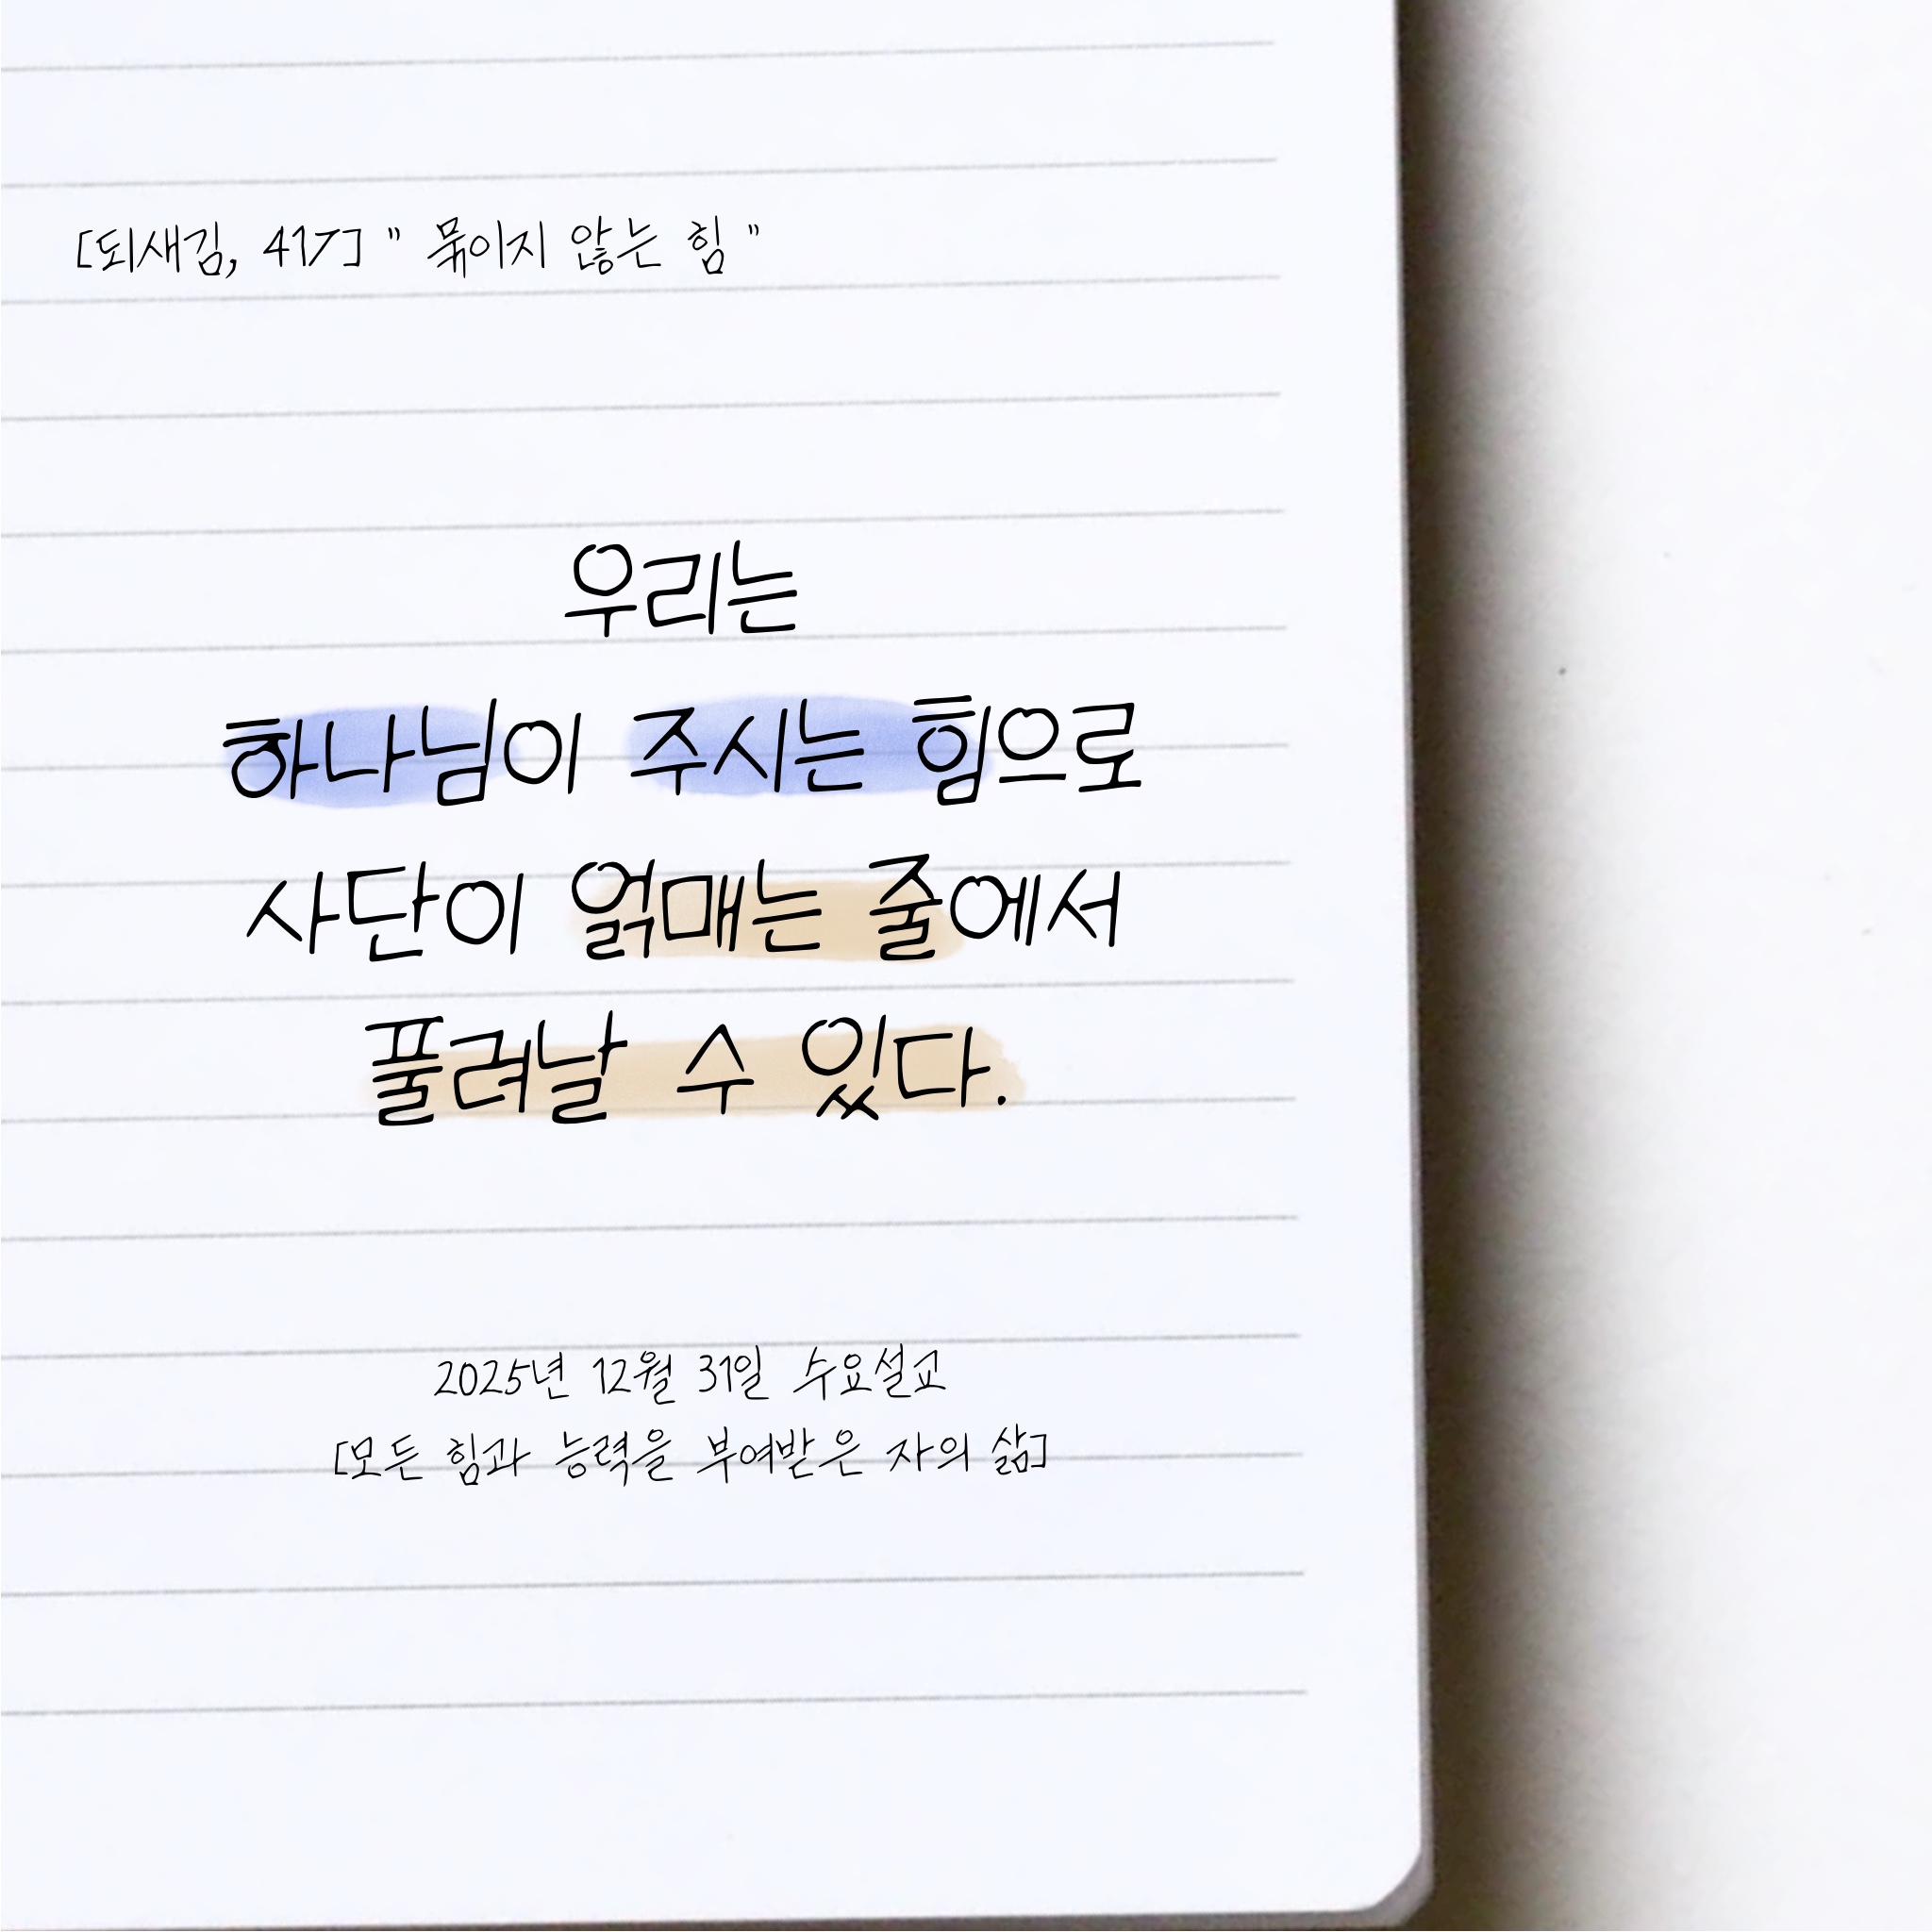 [되새김, 417] " 묶이지 않는 힘 "
우리는
하나님이 주시는 힘으로
사단이 얽매는 줄에서
풀려날 수 있다.
2025년 12월 31일 수요설교
[모든 힘과 능력을 부여받은 자의 삶]